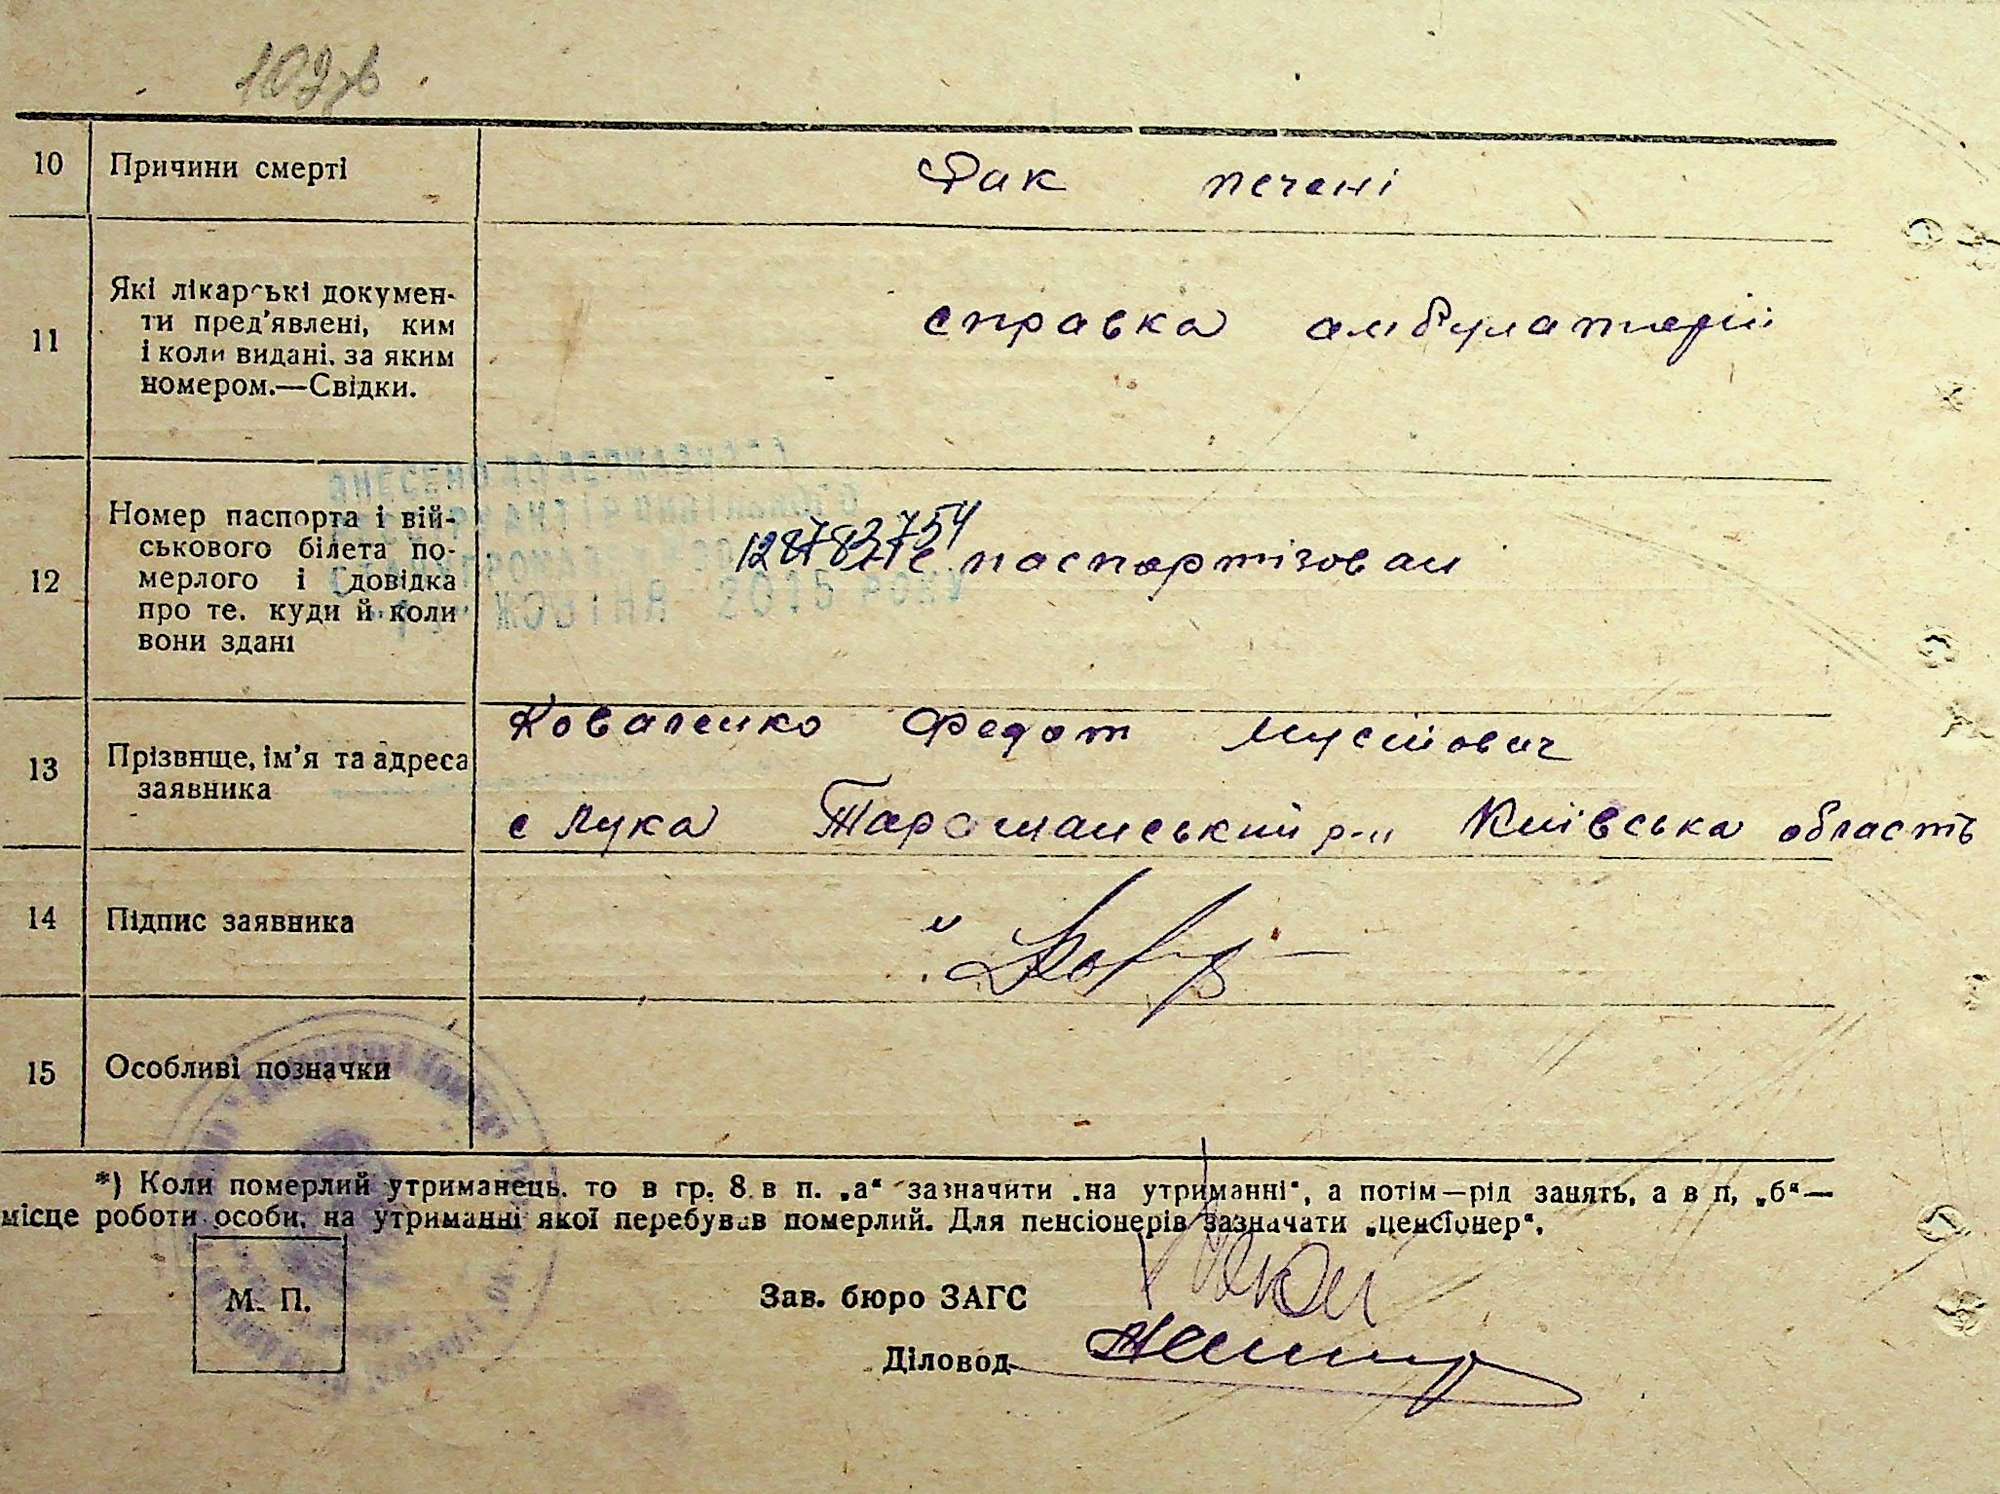 10 Причини смерті Рак печені
11 Які лікарські докумен-
ти пред'явлені, ким
і коли видані, за яким
номером.—Свідки.
справка амбулаторії
ВНЕСЕНО ДО ДЕРЖАВНОГО
ЖОВТНЯ 2015 РОКУ
12 Номер паспорта і вій-
ськового білета по-
мерлого і довідка
про те, куди й коли
вони здані
128783754
не паспортізован
13 Прізвище, ім'я та адреса
заявника
Коваленко Федот Мусійович
с Лука Таращанський р-н Київська область
14 Підпис заявника
15 Особливі позначки
*) Коли померлий утриманець, то в гр. 8 в п. „а“ зазначити „на утриманні“, а потім—рід занять, а в п, „б“—
місце роботи особи, на утриманні якої перебував померлий. Для пенсіонерів зазначати „пенсіонер“.
М. П.
Зав. бюро ЗАГС
Діловод